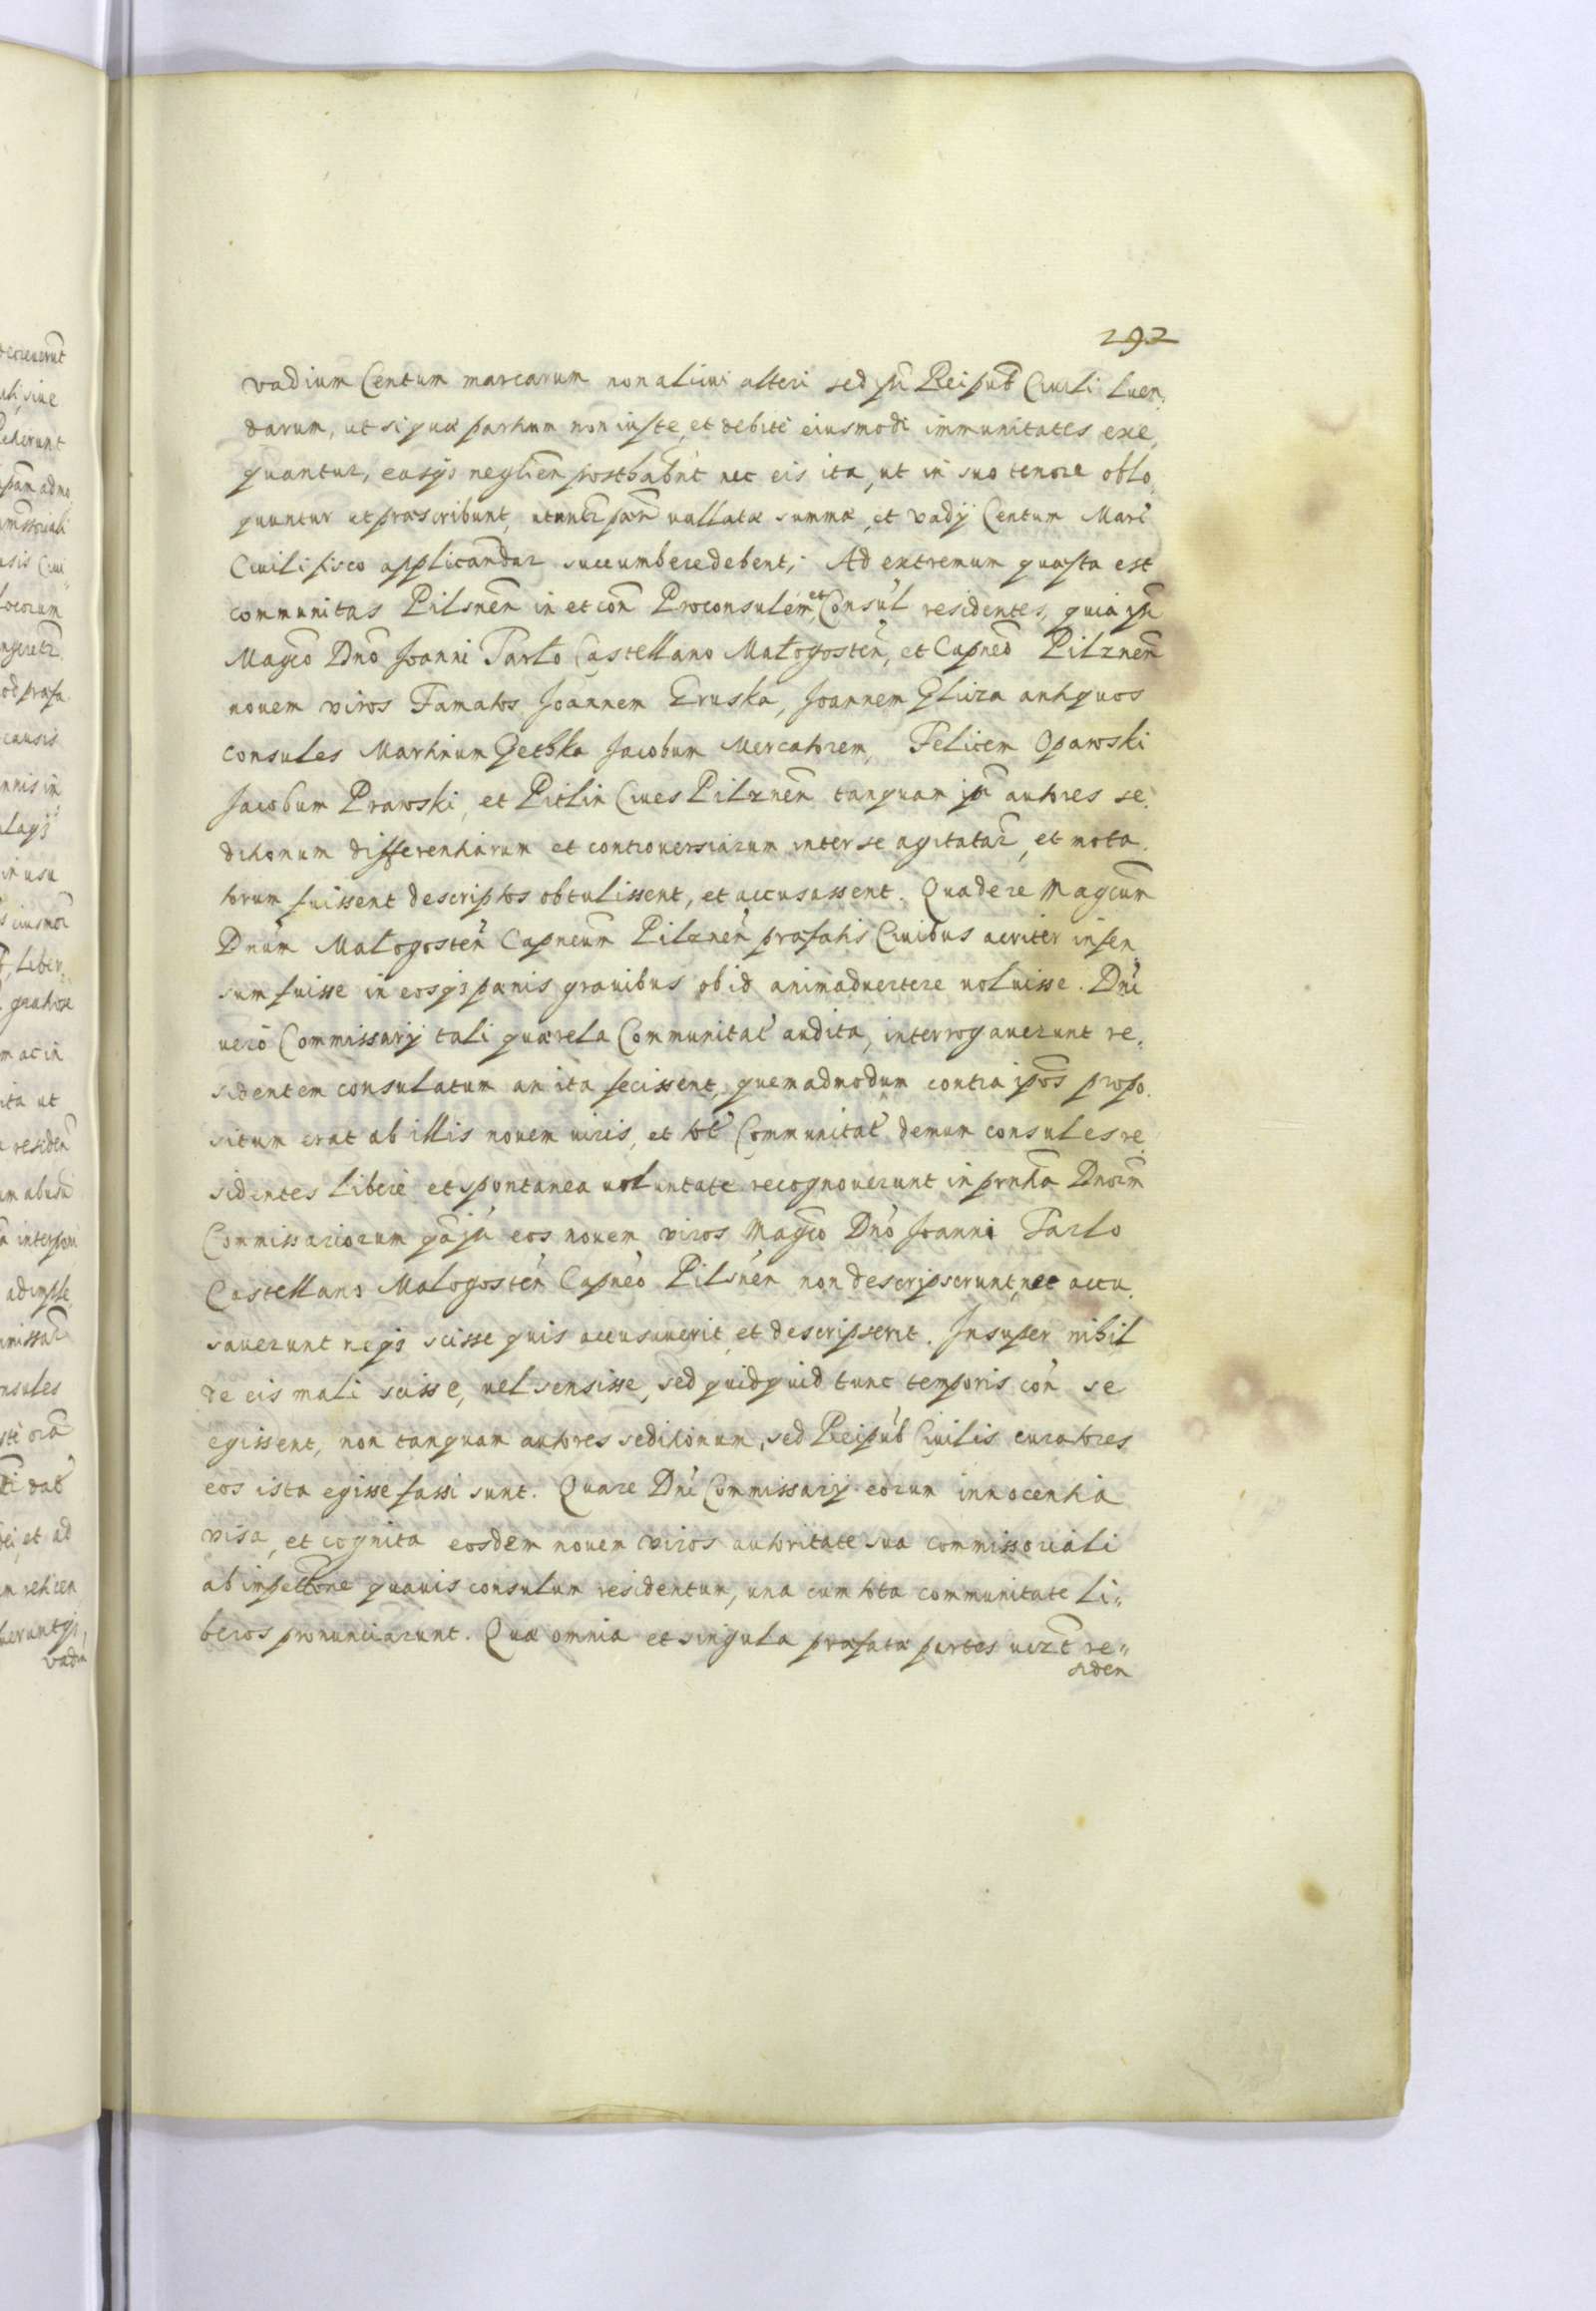 292
vadium Centum marcarum non alicui alteri sed ipsi Reipub Ciuili luen,
darum, ut si quæ partium non iuste, et debite eiusmodi immunitates exe,
quantur, easqз neglien posthabnt nec eis ita, ut in suo tenore oblo,
quuntur et præscribunt, utuntr pœn uallatæ summæ, et vadij Centum Marc
Ciuili fisco applicandar succumbere debent; Ad extremum quæsta est
communitas Pilsnen in et con Proconsulem, et Consul residentes, quia ipsi
Magco Dno Joanni Tarło Castellano Małogosten, et Capneo Pilznen
nouem viros Famatos Joannem Kruska, Joannem Gliza antiquos
consules Martinum Gethka Jacobum Mercatorem, Felicem Opawski
Jacobum Prawski, et Pitlin Ciues Pilznen tanquam autores se,
ditionum differentiarum et controuersiarum inter se agitatar, et mota,
torum fuissent descriptos obtulissent, et accusassent. Qua de re Magcum
Dnum Małogosten Capneum Pilznen præfatis Ciuibus acriter infen,
sum fuisse in eosqз pænis grauibus ob id animaduertere uoluisse. Dni
uero Commissarij tali quærela Communitat audita, interrogauerunt re,
sidentem consulatum an ita fecissent, quemadmodum contra ipos propo,
situm erat ab illis nouem uiris, et tot Communitat demum consules re,
sidentes libere et spontanea uoluntate recognouerunt in prntia Dnorm
Commissariorum qa ipsi eos nouem viros Magco Dno Joanni Tarlo
Castellano Malogosten Capneo Pilsnen non descripserunt, nec accu,
sauerunt neqз scisse quis accusauerit, et descripserit. Insuper nihil
de eis mali scisse, uel sensisse, sed quidquid tunc temporis con se
egissent, non tanquam autores seditionum, sed Reipub Ciuilis curatores
eos ista egisse fassi sunt. Quare Dni Commissarij eorum innocentia
visa, et cognita eosdem nouem viros autoritate sua commissoriali
ab impetitione quauis consulum residentum, una cum tota communitate li,,
beros pronunciarunt. Quæ omnia et singula præfatæ partes uizt re,,
siden